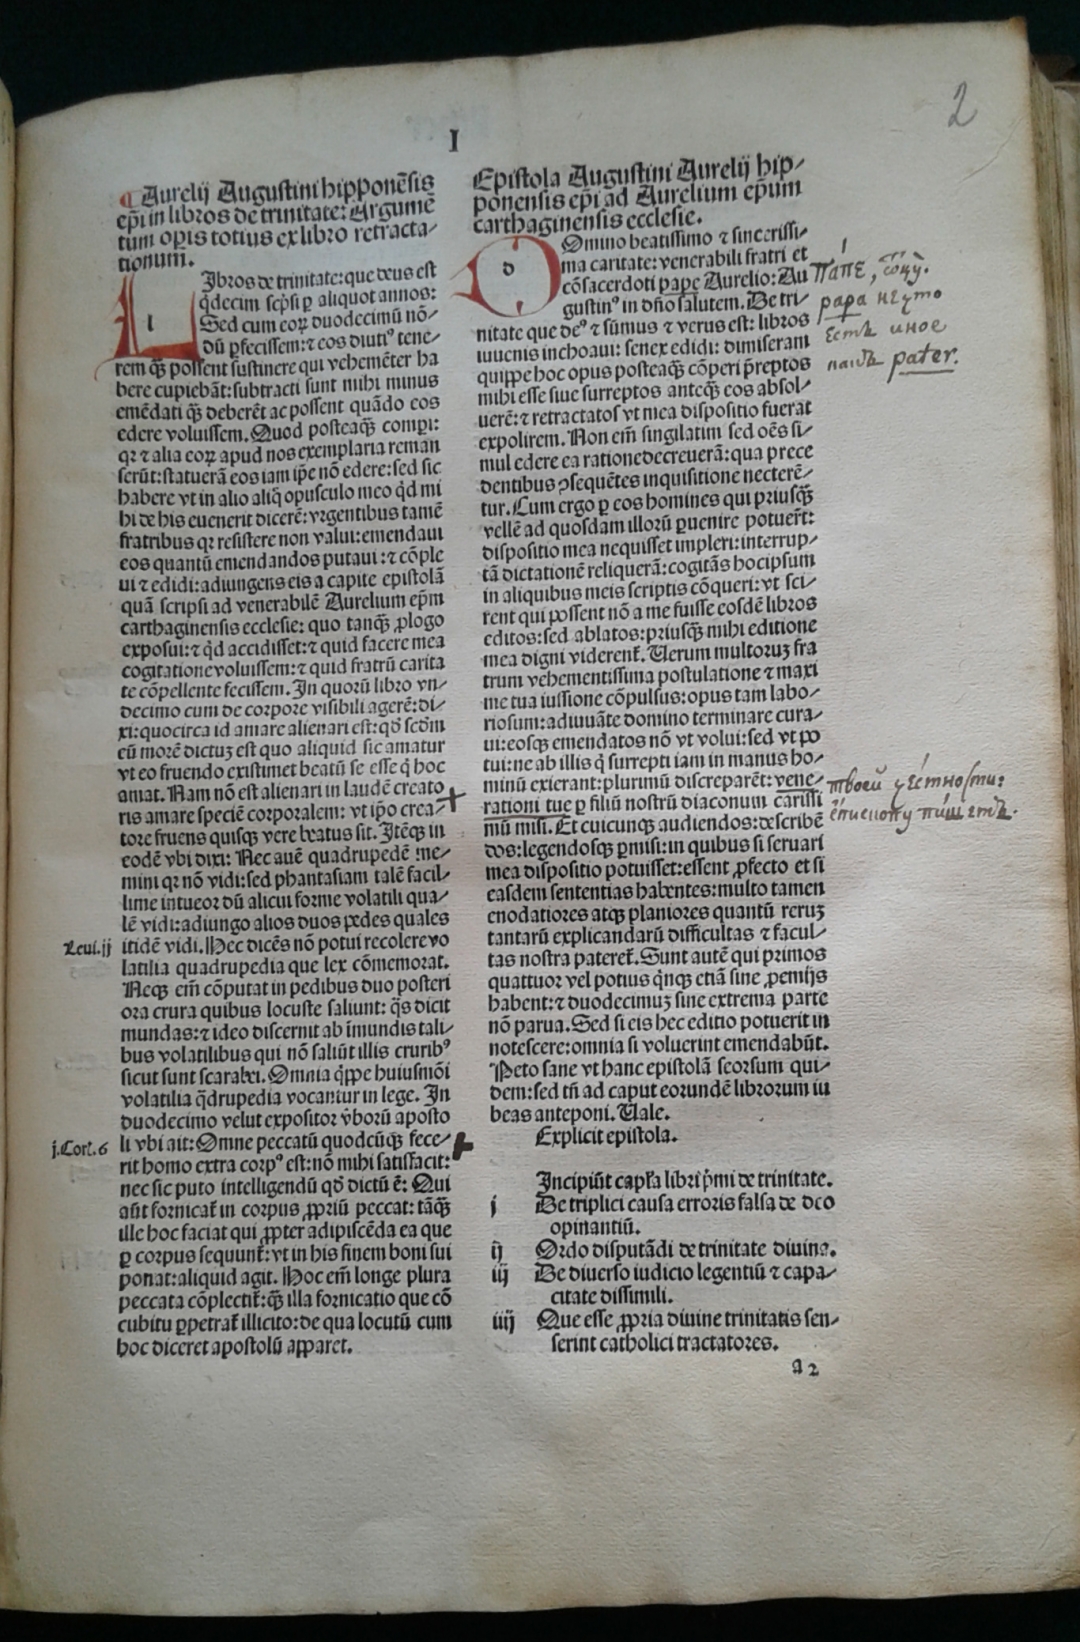 2
I
¶ Aurelij Augustini hipponēsis
ep̄i in libros de trinitate: Argumē
tum op̄is totius ex libro retracta/
tionum.
l
LIbros de trinitate: que deus est
q̄decim sep̄si ꝑ aliquot annos:
Sed cum eoꝝ duodecimū nō/
dū ꝑfecissem: ⁊ eos diutiꝰ tene/
rem q̄ꝫ possent sustinere qui vehemēter ha
bere cupiebāt: subtracti sunt mihi minus
emēdati q̄ꝫ deberēt ac possent quādo eos
edere voluissem. Quod posteaq̄ꝫ comꝑi:
qꝛ ⁊ alia eoꝝ apud nos exemplaria reman
serūt: statuerā eos iam ip̄e nō edere: sed sic
habere vt in alio aliq̄ opusculo meo q̇d mi
hi de his euenerit dicerē: vrgentibus tamē
fratribus qꝛ resistere non valui: emendaui
eos quantū emendandos putaui: ⁊ cōple
ui ⁊ edidi: adiungens eis a capite epistolā
quā scripsi ad venerabilē Aurelium ep̄m
carthaginensis ecclesie: quo tanq̄ꝫ ꝓlogo
exposui: ⁊ q̇d accidisset: ⁊ quid facere mea
cogitatione voluissem: ⁊ quid fratrū carita
te cōpellente fecissem. In quorū libro vn/
decimo cum de corpore visibili agerē: di/
xi: quocirca id amare alienari est: qḋ scḋm
eū morē dictuꝫ est quo aliquid sic amatur
vt eo fruendo existimet beatū se esse q̇ hoc
amat. Nam nō est alienari in laudē creato
ris amare speciē corporalem: vt ip̄o crea/
tore fruens quisqꝫ vere beatus sit. Itēqꝫ in
eodē vbi dixi: Nec auē quadrupedē me/
mini qꝛ nō vidi: sed phantasiam talē facil/
lime intueor dū alicui forme volatili qua/
lē vidi: adiungo alios duos pedes quales
Leui. ij
itidē vidi. Hec dicēs nō potui recolere vo
latilia quadrupedia que lex cōmemorat.
Neqꝫ em̄ cōputat in pedibus duo posteri
ora crura quibus locuste saliunt: q̄s dicit
mundas: ⁊ ideo discernit ab īmundis tali/
bus volatilibus qui nō saliūt illis cruribꝰ
sicut sunt scarabei. Omnia q̄ppe huiusmōi
volatilia q̄drupedia vocantur in lege. In
duodecimo velut expositor v̇borū aposto
j. Cort. 6
li vbi ait: Omne peccatū quodcūqꝫ fece/
rit homo extra corpꝰ est: nō mihi satisfacit:
nec sic puto intelligendū qḋ dictū ē: Qui
aūt fornicat̄ in corpus ꝓpriū peccat: tāq̄ꝫ
ille hoc faciat qui ꝓpter adipiscēda ea que
ꝑ corpus sequunt̄: vt in his finem boni sui
ponat: aliquid agit. Hoc em̄ longe plura
peccata cōplectit̄: q̄ꝫ illa fornicatio que cō
cubitu ꝑpetrat̄ illicito: de qua locutū cum
hoc diceret apostolū apparet.
Epistola Augustini Aurelij hip/
ponensis ep̄i ad Aurelium ep̄um
carthaginensis ecclesie.
d
DOmino beatissimo ⁊ sincerissi/
ma caritate: venerabili fratri et
cōsacerdoti pape Aurelio: Au
gustinꝰ in dn̄o salutem. De tri/
nitate que deꝰ ⁊ sūmus ⁊ verus est: libros
iuuenis inchoaui: senex edidi: dimiseram
quippe hoc opus posteaq̄ꝫ cōperi p̄reptos
mihi esse siue surreptos anteq̄ꝫ eos absol/
uerē: ⁊ retractatos vt mea dispositio fuerat
expolirem. Non em̄ singilatim sed oēs si/
mul edere ea ratione decreuerā: qua prece
dentibus ꝯsequētes inquisitione necterē/
tur. Cum ergo ꝑ eos homines qui priusq̄ꝫ
vellē ad quosdam illorū ꝑuenire potuert̄:
dispositio mea nequisset impleri: interrup/
tā dictationē reliquerā: cogitās hoc ipsum
in aliquibus meis scriptis cōqueri: vt sci/
rent qui possent nō a me fuisse eosdē libros
editos: sed ablatos: priusq̄ꝫ mihi editione
mea digni viderent̄. Uerum multoruꝫ fra
trum vehementissima postulatione ⁊ maxi
me tua iussione cōpulsus: opus tam labo/
riosum: adiuuāte domino terminare cura/
ui: eosqꝫ emendatos nō vt volui: sed vt po
tui: ne ab illis q̇ surrepti iam in manus ho/
minū exierant: plurimū discreparēt: vene/
rationi tue ꝑ filiū nostrū diaconum carissi
mū misi. Et cuicunqꝫ audiendos: describē
dos: legendosqꝫ ꝑmisi: in quibus si seruari
mea dispositio potuisset: essent ꝓfecto et si
easdem sententias habentes: multo tamen
enodatiores atqꝫ planiores quantū reruꝫ
tantarū explicandarū difficultas ⁊ facul/
tas nostra pateret̄. Sunt autē qui primos
quattuor vel potius q̇nqꝫ etiā sine ꝓemijs
habent: ⁊ duodecimuꝫ sine extrema parte
nō parua. Sed si eis hec editio potuerit in
notescere: omnia si voluerint emendabūt.
Peto sane vt hanc epistolā seorsum qui/
dem: sed tn̄ ad caput eorundē librorum iu
beas anteponi. Uale.
Explicit epistola.
Incipiūt capl̄a libri p̄mi de trinitate.
j De triplici causa erroris falsa de deo
opinantiū.
ij Ordo disputādi de trinitate diuina.
iij De diuerso iudicio legentiū ⁊ capa/
citate dissimili.
iiij Que esse ꝓpria diuine trinitatis sen/
serint catholici tractatores.
a 2
папе, ѿцу.
papa не что
есть иное
pater.
твоей честности:
епископу пишетъ.